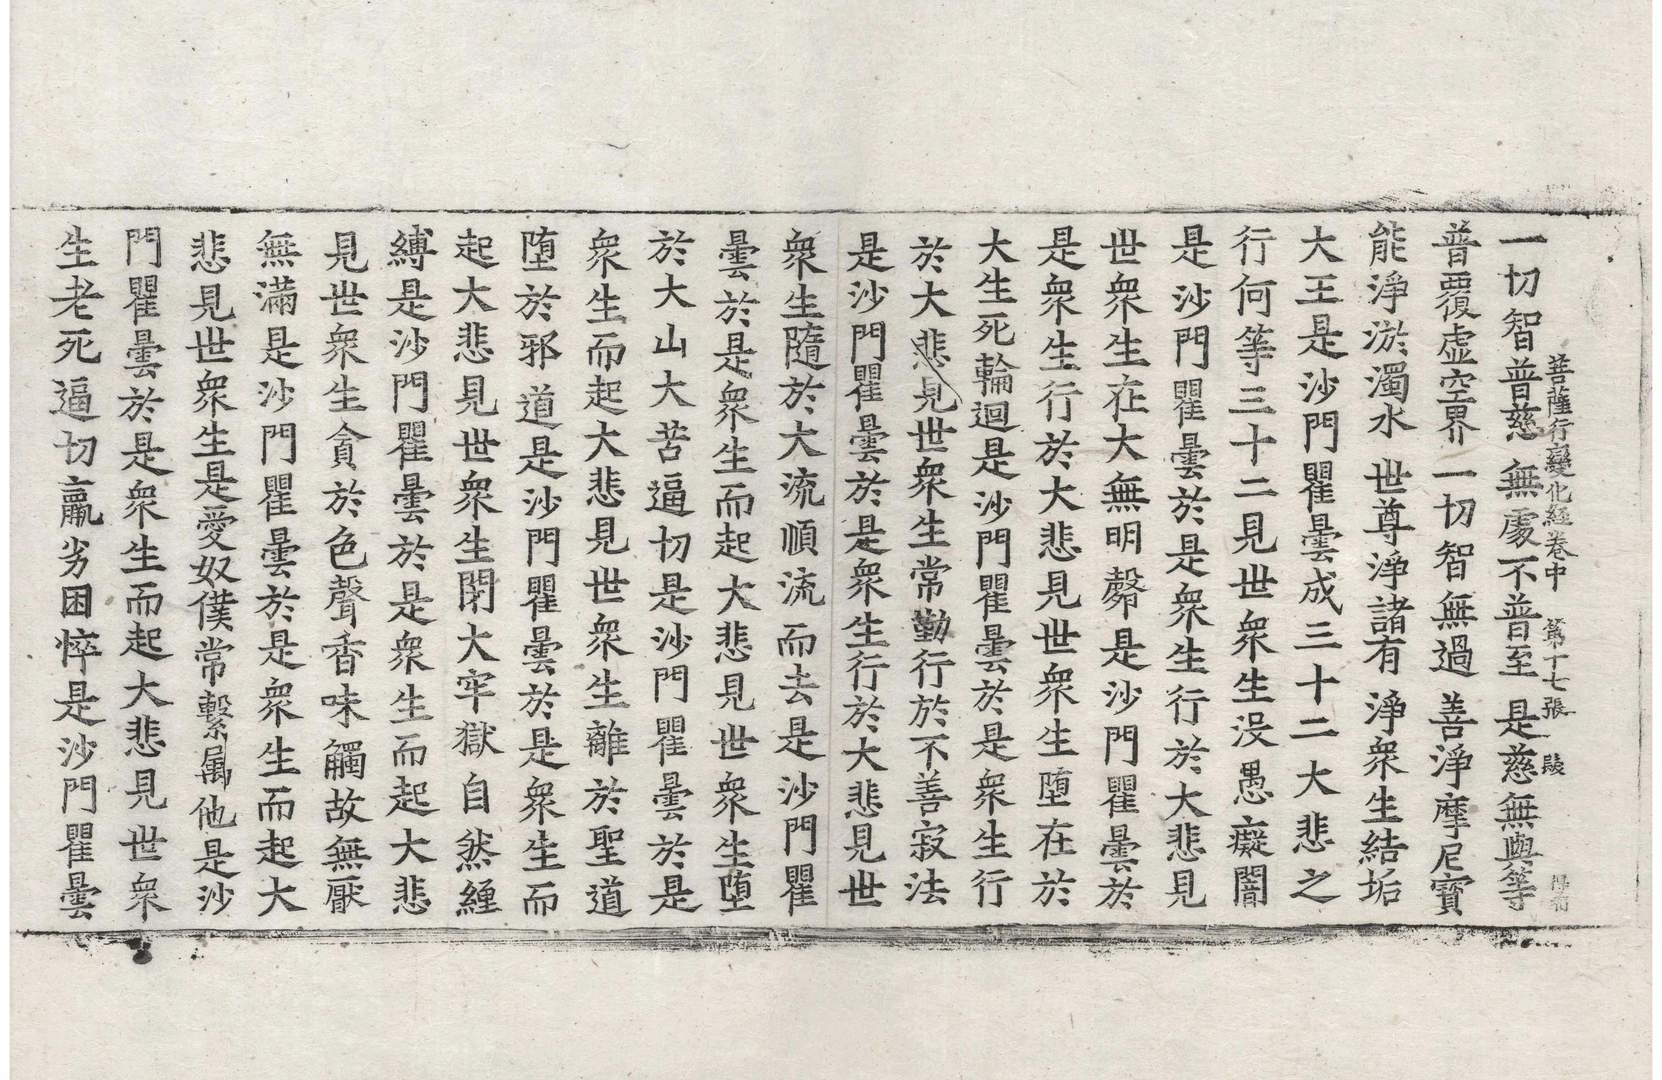 菩薩行變化經卷中　第十七張　陞
一切智普慈　無處不普至　是慈無與等
普覆虛空界　一切智無過　善淨摩尼寶
能淨淤濁水　世尊淨諸有　淨衆生結垢
大王是沙門瞿曇成三十二大悲之
行何等三十二見世衆生没愚癡闇
是沙門瞿曇於是衆生行於大悲見
世衆生在大無明㲉是沙門瞿曇於
是衆生行於大悲見世衆生墮在於
大生死輪迴是沙門瞿曇於是衆生行
於大悲見世衆生常勤行於不善寂法
是沙門瞿曇於是衆生行於大悲見世
衆生隨於大流順流而去是沙門瞿
曇於是衆生而起大悲見世衆生墮
於大山大苦逼切是沙門瞿曇於是
衆生而起大悲見世衆生離於聖道
墮於邪道是沙門瞿曇於是衆生而
起大悲見世衆生閉大牢獄自然纏
縛是沙門瞿曇於是衆生而起大悲
見世衆生貪於色聲香味觸故無厭
無滿是沙門瞿曇於是衆生而起大
悲見世衆生是愛奴僕常繫属他是沙
門瞿曇於是衆生而起大悲見世衆
生老死逼切羸劣困悴是沙門瞿曇